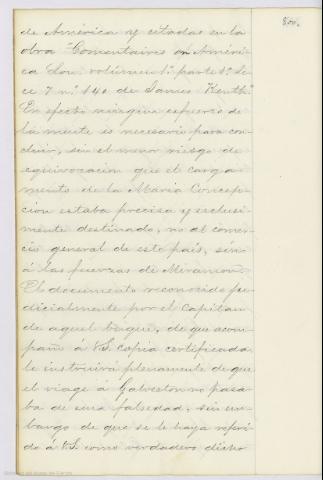 800.
de América y citadas en la
obra "Comentaires on Améri-
ca Law. volúmen 1º parte 1ª Le
ce 7 n.º 140 de James Kenth."
En efecto ningun esfuerzo de
la mente es necesario para con
cluir, sin el menor riesgo de
equivocacion que el carga-
mento de la Maria Concep-
cion estaba precisa y esclusi-
mente destinado, no al comer-
cio general de este pais, sinó
á las fuerzas de Miramon.
El documento reconocido ju-
dicialmente por el Capitan
de aquel buque, de que acom-
paño á V.S. copia certificada
le instruirá plenamente de que
el viage á Galveston no pasa-
ba de una falsedad, sin em-
bargo de que se le haya referi-
do á V.S. como verdadero dicho